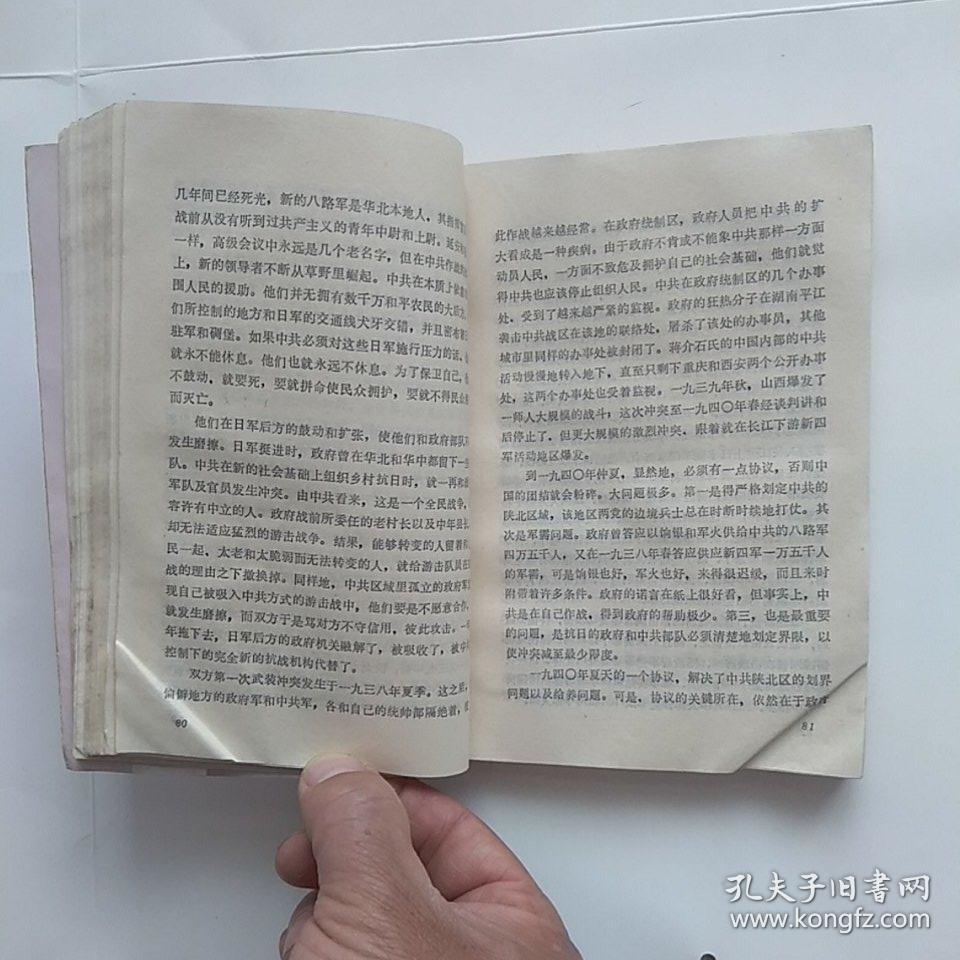 几年间已经死光，新的八路军是华北本地人，其
战前从没有听到过共产主义的青年中尉和上尉。延安
一样，高级会议中永远是几个老名字，但在中共作战
上，新的领导者不断从草野里崛起。中共在本质上
围人民的援助。他们并无拥有数千万和平农民的大
们所控制的地方和日军的交通线犬牙交错，并且密布
驻军和碉堡。如果中共必须对这些日军施行压力的话，
就永不能休息。他们也就永远不休息。为了保卫自己，
不鼓动，就要死，要就拼命使民众拥护，要就不得民
而灭亡。
他们在日军后方的鼓动和扩张，使他们和政府部队
发生磨擦。日军挺进时，政府曾在华北和华中都留下一
队。中共在新的社会基础上组织乡村抗日时，就一再和
军队及官员发生冲突。由中共看来，这是一个全民战争，
容许有中立的人。政府战前所委任的老村长以及中年县
却无法适应猛烈的游击战争。结果，能够转变的人留着
民一起、太老和太脆弱而无法转变的人，就给游击队员在
战的理由之下撤换掉。同样地，中共区域里孤立的政府军
现自己被吸入中共方式的游击战中，他们要是不愿意合作，
就发生磨擦，而双方于是骂对方不守信用，彼此攻击。一
年拖下去，日军后方的政府机关融解了，被吸收了，被中
控制下的完全新的抗战机构代替了。
双方第一次武装冲突发生于一九三八年夏季。这之后，
偏僻地方的政府军和中共军，各和自己的统帅部隔绝着，
80
此作战越来越经常。在政府统制区，政府人员把中共的扩
大看成是一种疾病。由于政府不肯或不能象中共那样一方面
动员人民，一方面不致危及拥护自己的社会基础，他们就觉
得中共也应该停止组织人民。中共在政府统制区的几个办事
处、受到了越来越严紧的监视。政府的狂热分子在湖南平江
袭击中共战区在该地的联络处，屠杀了该处的办事员，其他
城市里同样的办事处被封闭了。蒋介石氏的中国内部的中共
活动慢慢地转入地下，直至只剩下重庆和西安两个公开办事
处，这两个办事处也受着监视。一九三九年秋，山西爆发了
一师人大规模的战斗；这次冲突至一九四〇年春经谈判讲和
后停止了，但更大规模的激烈冲突、跟着就在长江下游新四
军活动地区爆发。
到一九四〇年仲夏，显然地，必须有一点协议，否则中
国的团结就会粉碎。大问题极多。第一是得严格划定中共的
陕北区域，该地区两党的边境兵士总在时断时续地打仗。其
次是军需问题。政府曾答应以饷银和军火供给中共的八路军
四万五千人，又在一九三八年春答应供应新四军一万五千人
的军需，可是饷银也好，军火也好，来得很迟缓，而且来时
附带着许多条件。政府的诺言在纸上很好看，但事实上，中
共是在自己作战，得到政府的帮助极少。第三，也是最重要
的问题，是抗日的政府和中共部队必须清楚地划定界限，以
使冲突减至最少限度。
一九四〇年夏天的一个协议，解决了中共陕北区的划界
问题以及给养问题。可是，协议的关键所在，依然在于政
81
孔夫子旧書网
www.kongfz.com